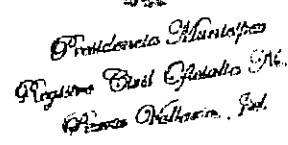 Presidencia Municipal
Registro Civil Oficialía
Puerto Vallarta, Jal.